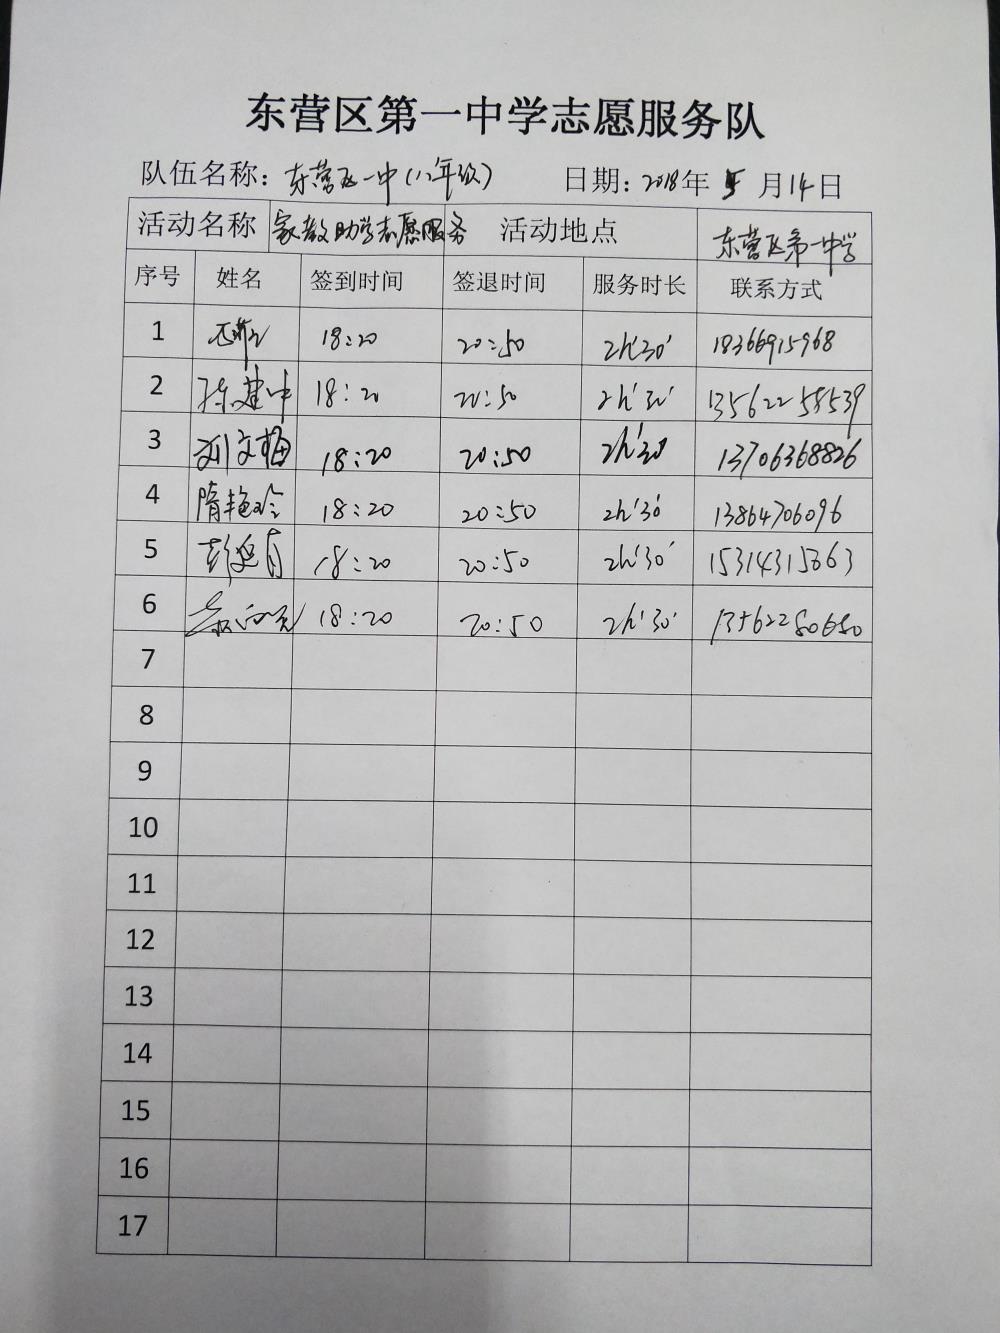 东营区第一中学志愿服务队
队伍名称：东营区一中（八年级） 日期：2018年5月14日
活动名称 家教助学志愿服务 活动地点 东营区第一中学
序号 姓名 签到时间 签退时间 服务时长 联系方式
1 18:20 20:50 2h'30' 18366915968
2 陈建中 18:20 20:50 2h'30' 13562258539
3 刘文梅 18:20 20:50 2h'30' 13706368826
4 隋艳玲 18:20 20:50 2h'30' 13864706096
5 18:20 20:50 2h'30' 15314315663
6 18:20 20:50 2h'30' 13562280680
7
8
9
10
11
12
13
14
15
16
17